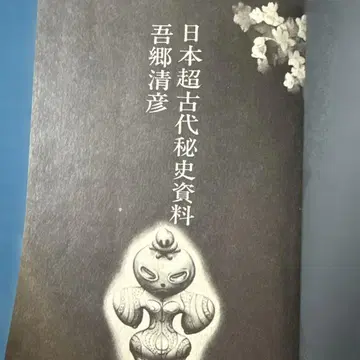 日本超古代秘史資料
吾郷清彦